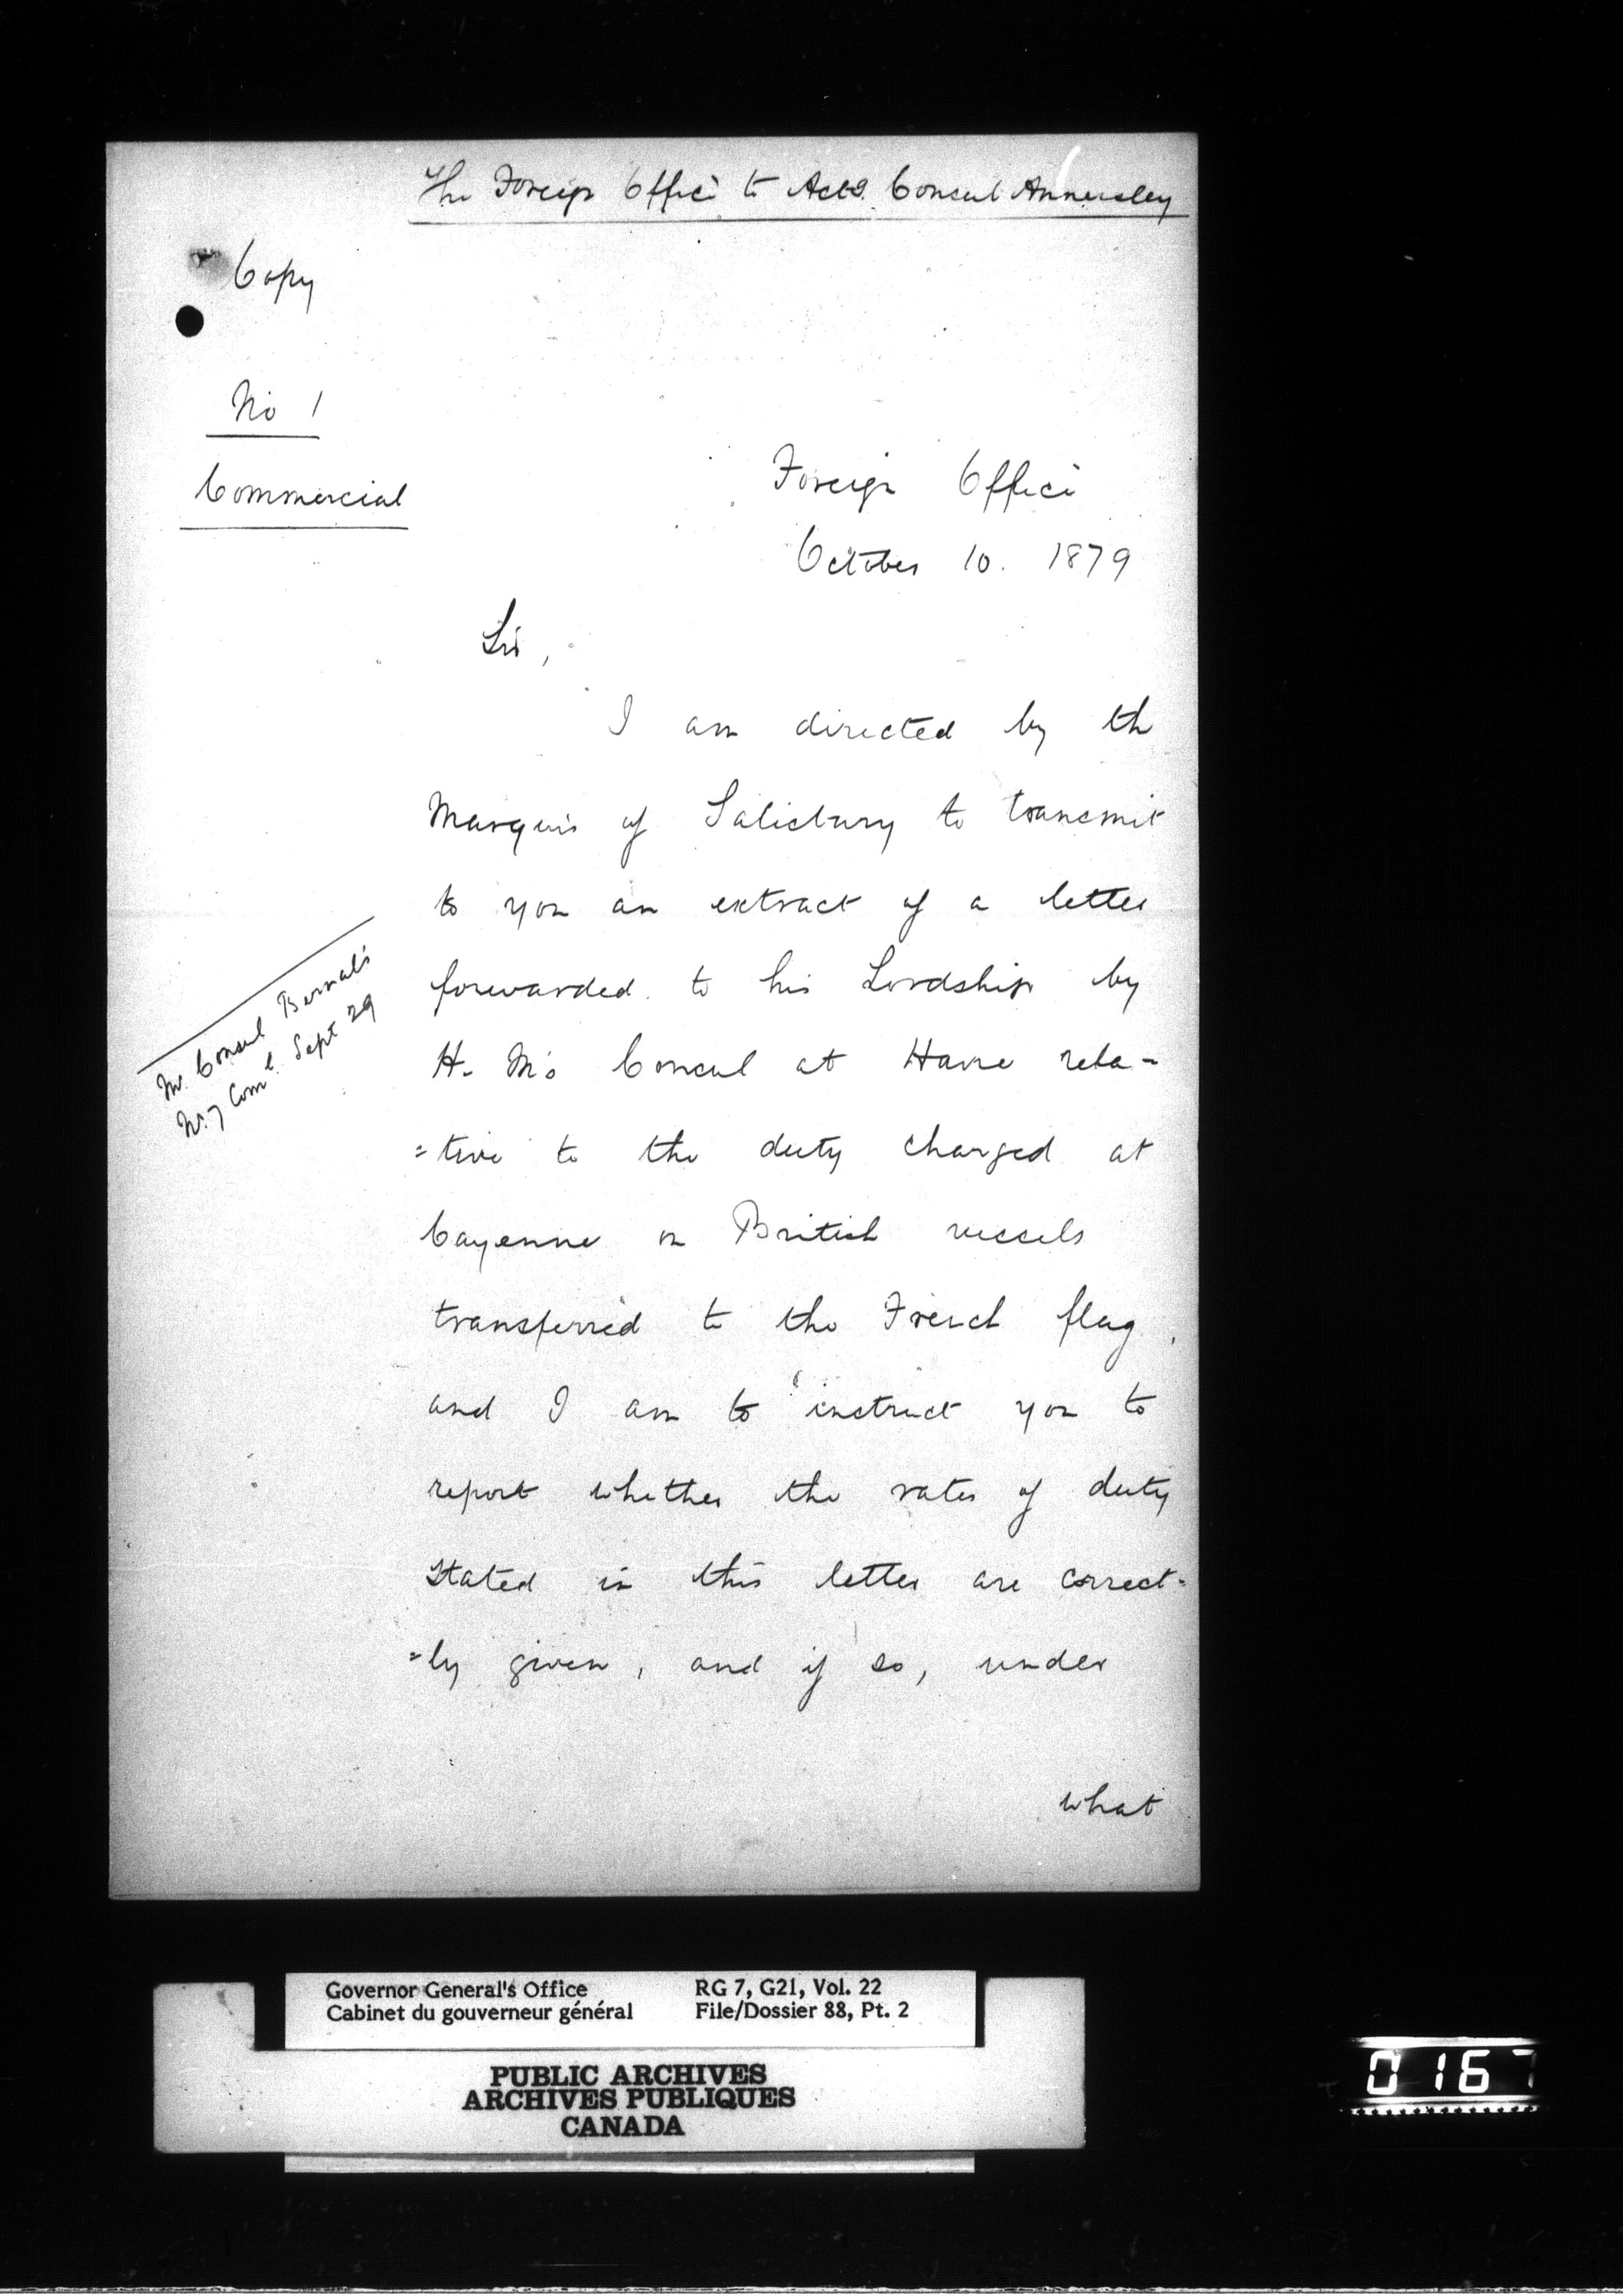 The Foreign Office to Actg. Consul Annersley
Copy
No 1
Commercial
Foreign Office
October 10. 1879
Sir,
I am directed by the
Marquis of Salisbury to transmit
to you an extract of a letter
forwarded to his Lordship by
H. M's Consul at Havre rela-
=tive to the duty charged at
Cayenne on British vessels
transferred to the French flag,
and I am to instruct you to
report whether the rates of duty
stated in this letter are correct-
=ly given, and if so, under
what
Mr. Consul Bernal's
No. 7 Coml. Sept 29
Governor General's Office
Cabinet du gouverneur général
RG 7, G21, Vol. 22
File/Dossier 88, Pt. 2
PUBLIC ARCHIVES
ARCHIVES PUBLIQUES
CANADA
0167